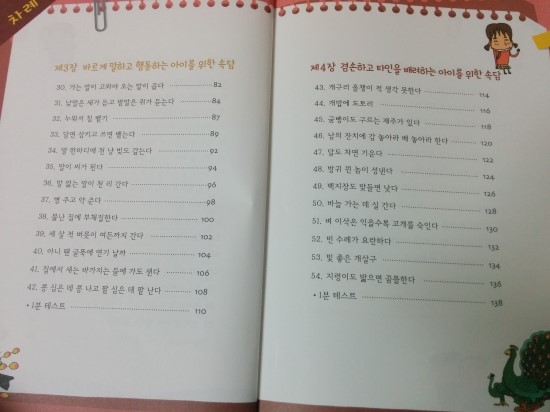 차례
제3장 바르게 말하고 행동하는 아이를 위한 속담
30. 가는 말이 고와야 오는 말이 곱다 82
31. 낮말은 새가 듣고 밤말은 쥐가 듣는다 84
32. 누워서 침 뱉기 87
33. 달면 삼키고 쓰면 뱉는다 89
34. 말 한마디에 천 냥 빚도 갚는다 92
35. 말이 씨가 된다 94
36. 발 없는 말이 천 리 간다 96
37. 병 주고 약 준다 98
38. 불난 집에 부채질한다 100
39. 세 살 적 버릇이 여든까지 간다 102
40. 아니 땐 굴뚝에 연기 날까 104
41. 집에서 새는 바가지는 들에 가도 샌다 106
42. 콩 심은 데 콩 나고 팥 심은 데 팥 난다 108
• 1분 테스트 110
제4장 겸손하고 타인을 배려하는 아이를 위한 속담
43. 개구리 올챙이 적 생각 못한다 114
44. 개밥에 도토리 116
45. 굼벵이도 구르는 재주가 있다 118
46. 남의 잔치에 감 놓아라 배 놓아라 한다 120
47. 달도 차면 기운다 122
48. 방귀 뀐 놈이 성낸다 124
49. 백지장도 맞들면 낫다 126
50. 바늘 가는 데 실 간다 128
51. 벼 이삭은 익을수록 고개를 숙인다 130
52. 빈 수레가 요란하다 132
53. 빛 좋은 개살구 134
54. 지렁이도 밟으면 꿈틀한다 136
• 1분 테스트 138